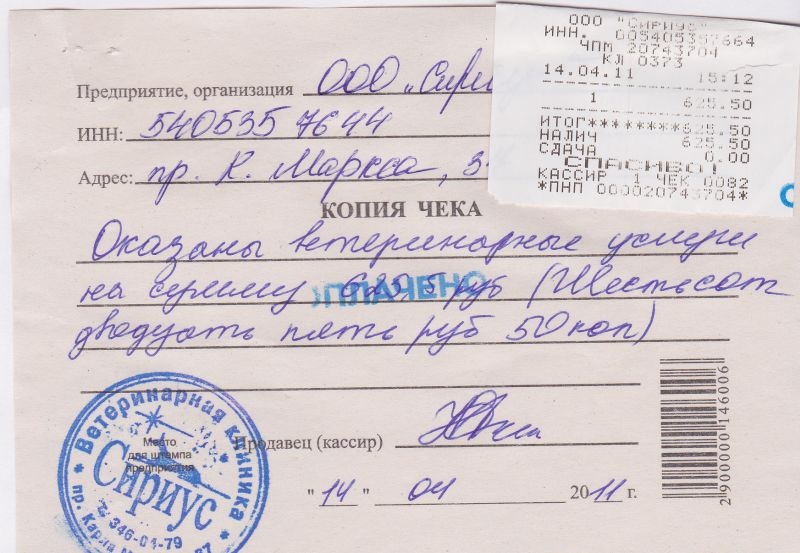 ООО "СИРИУС"
ИНН. 005405357664
ЧПМ 20743704
КЛ 0373
14.04.11 15:12
1 625.50
ИТОГ********625.50
НАЛИЧ 625.50
СДАЧА 0.00
СПАСИБО!
КАССИР 1 ЧЕК 0082
*ПНП 000020743704*
Предприятие, организация ООО „Сири
ИНН: 5405357644
Адрес: пр. К. Маркса, 3
КОПИЯ ЧЕКА
Оказаны ветеринарные услуги
на сумму 625,5 руб (Шестьсот
ОПЛАЧЕНО
двадцать пять руб 50 коп)
Продавец (кассир)
"14" 04 2011 г.
Место
для штампа
предприятия
Ветеринарная клиника
Сириус
т. 346-04-79
пр. Карла
2900000146006